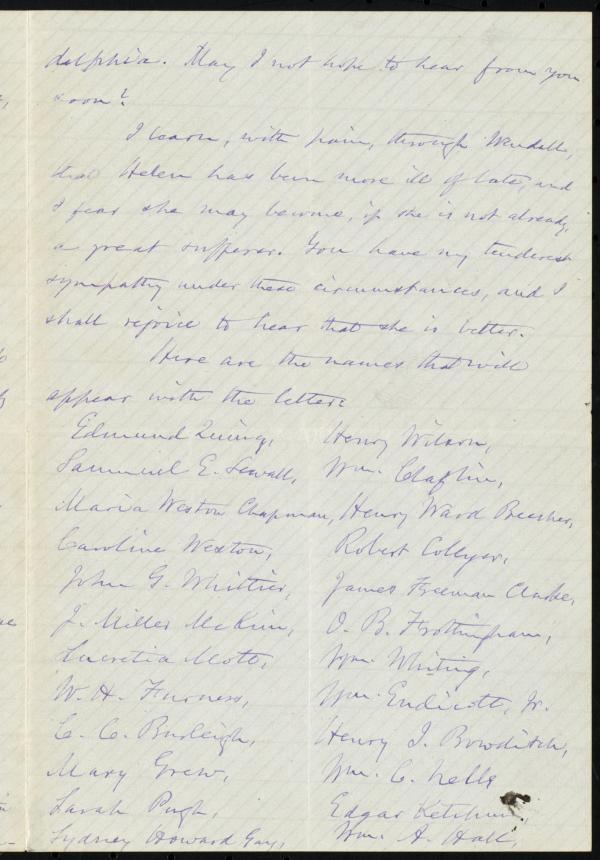 delphia. May I not hope to hear from you
soon?
I learn, with pain, through Wendell,
that Helen has been more ill of late, and
I fear she may become, if she is not already,
a great sufferer. You have my tenderest
sympathy under these circumstances, and I
shall rejoice to hear that she is better.
Here are the names that will
appear with the letter:
Edmund Quincy, Henry Wilson,
Samuel E. Sewall, Wm. Claflin,
Maria Weston Chapman, Henry Ward Beecher,
Caroline Weston, Robert Collyer,
John G. Whittier, James Freeman Clarke,
J. Miller McKim, O. B. Frothingham,
Lucretia Mott, Wm. Whiting,
W. H. Furness, Wm. Endicott, Jr.
C. C. Burleigh, Henry I. Bowditch,
Mary Grew, Wm. C. Nell,
Sarah Pugh, Edgar Ketchum,
Sydney Howard Gay, Wm. A. Hall,